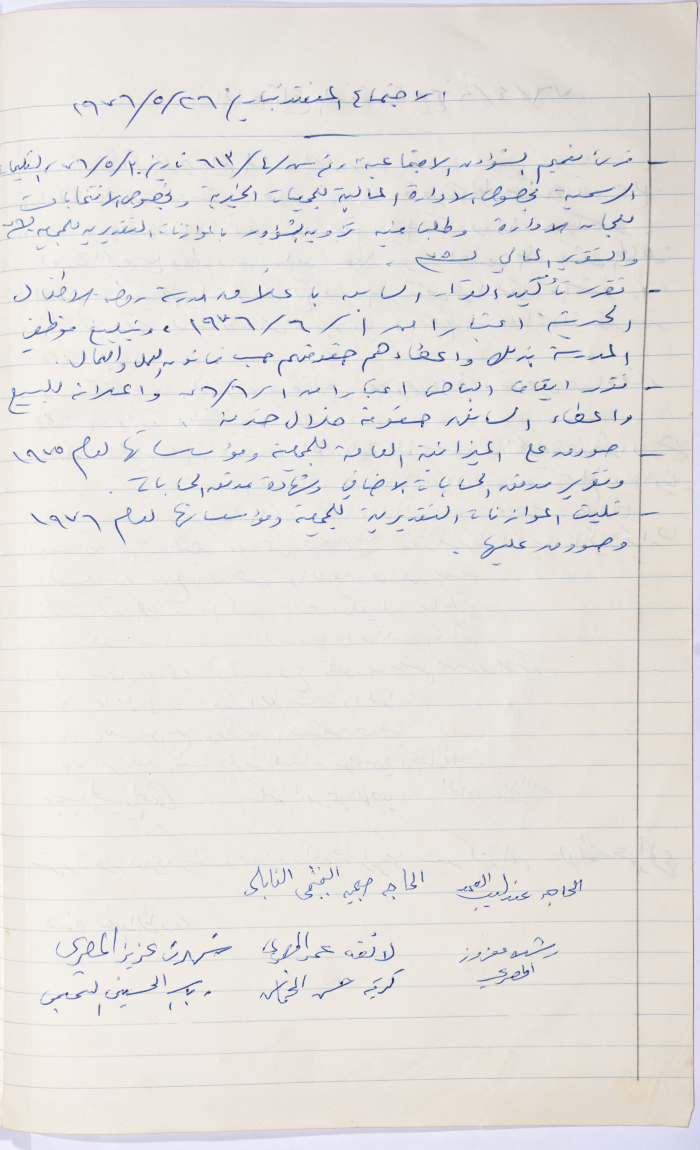 الاجتماع المنعقد بتاريخ ٢٦/٥/١٩٧٦
- قرئ تعميم الشؤون الاجتماعية رقم س/٤/٦١٣ تاريخ ٢٠/٥/٧٦ والتعليمات
الرسمية بخصوص الادارة المالية للجمعيات الخيرية وبخصوص الانتخابات
للجان الادارة وطلب فيه تزويد الشؤون بالموازنات التقديرية للجمعية
والتقرير المالي لسنة ٧٥ .
- تقرر تأكيد القرار السابق باغلاق مدرسة روضة الاطفال
الحديثة اعتبارا من ١/٦/١٩٧٦ ، وتبليغ موظفي
المدرسة بذلك واعطاءهم حقوقهم حسب قانون العمل والعمال .
- تقرر ايقاف الباص اعتبارا من ١/٦/٧٦ واعلانه للبيع
واعطاء السائق حقوقه خلال خدمته .
- صودق على الميزانية العامة للجمعية ومؤسساتها لعام ١٩٧٥
وتقرير مدقق الحسابات الاضافي وشهادة مدقق الحسابات .
- تليت الموازنات التقديرية للجمعية ومؤسساتها لعام ١٩٧٦
وصودق عليها .
الحاجه عندليب العمد الحاجه النابلسي
معزوز المصري لائقه عزيز المصري
كريمة حسن الحسيني التميمي